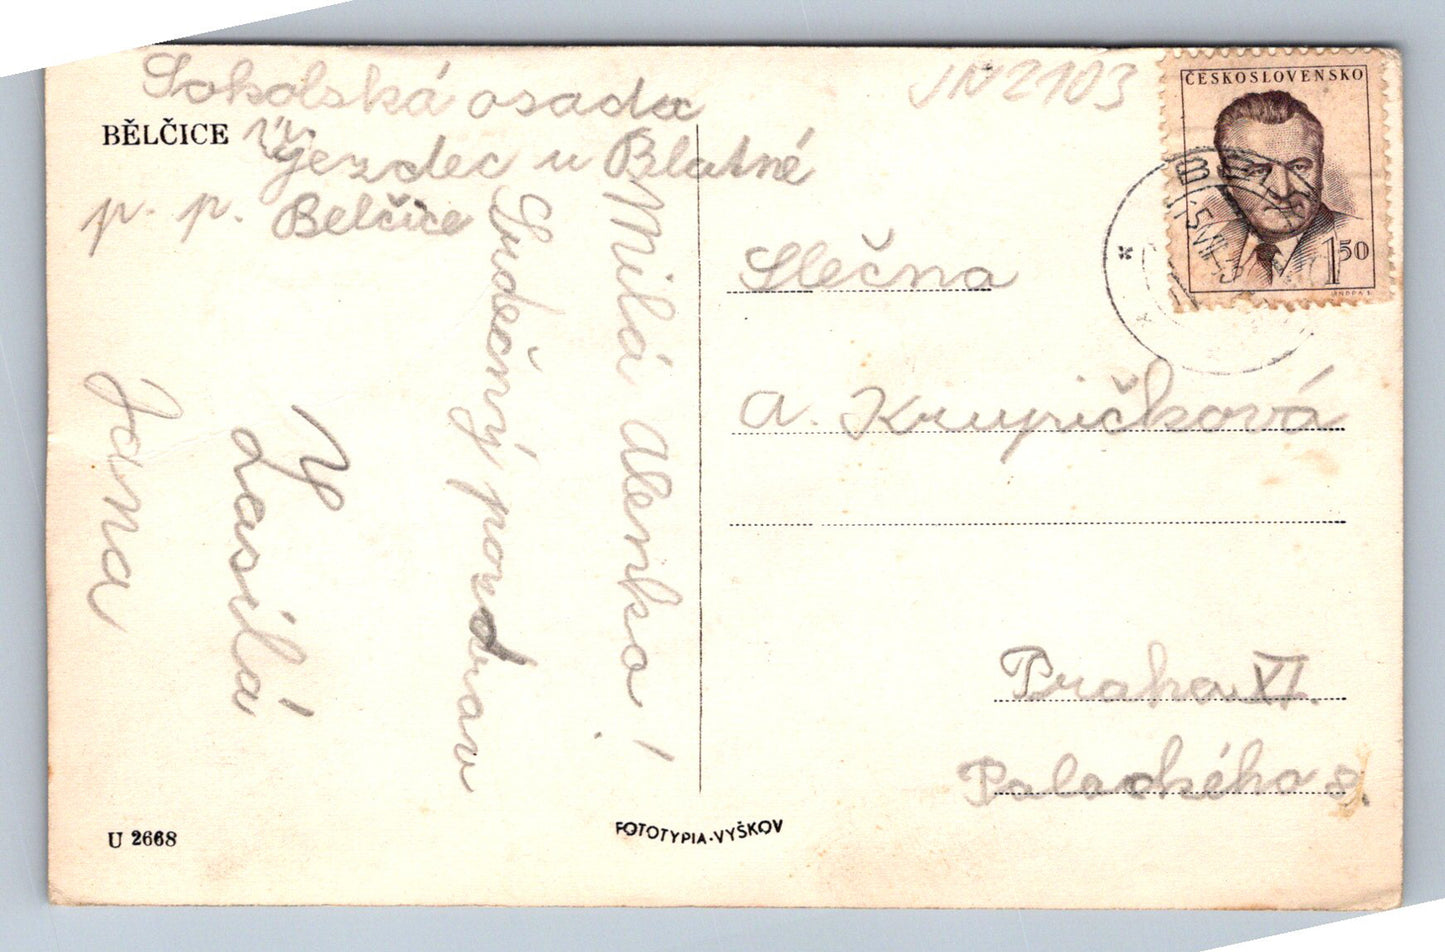 Sokolská osada
BĚLČICE
Újezdec u Blatné
p. p. Belčice
Milá Alenko!
Srdečný pozdrav
Zasílá
Jana
JN2103
ČESKOSLOVENSKO
1 50
Slečna
A. Krupičková
Praha XI.
Palackého 8.
U 2668
FOTOTYPIA-VYŠKOV